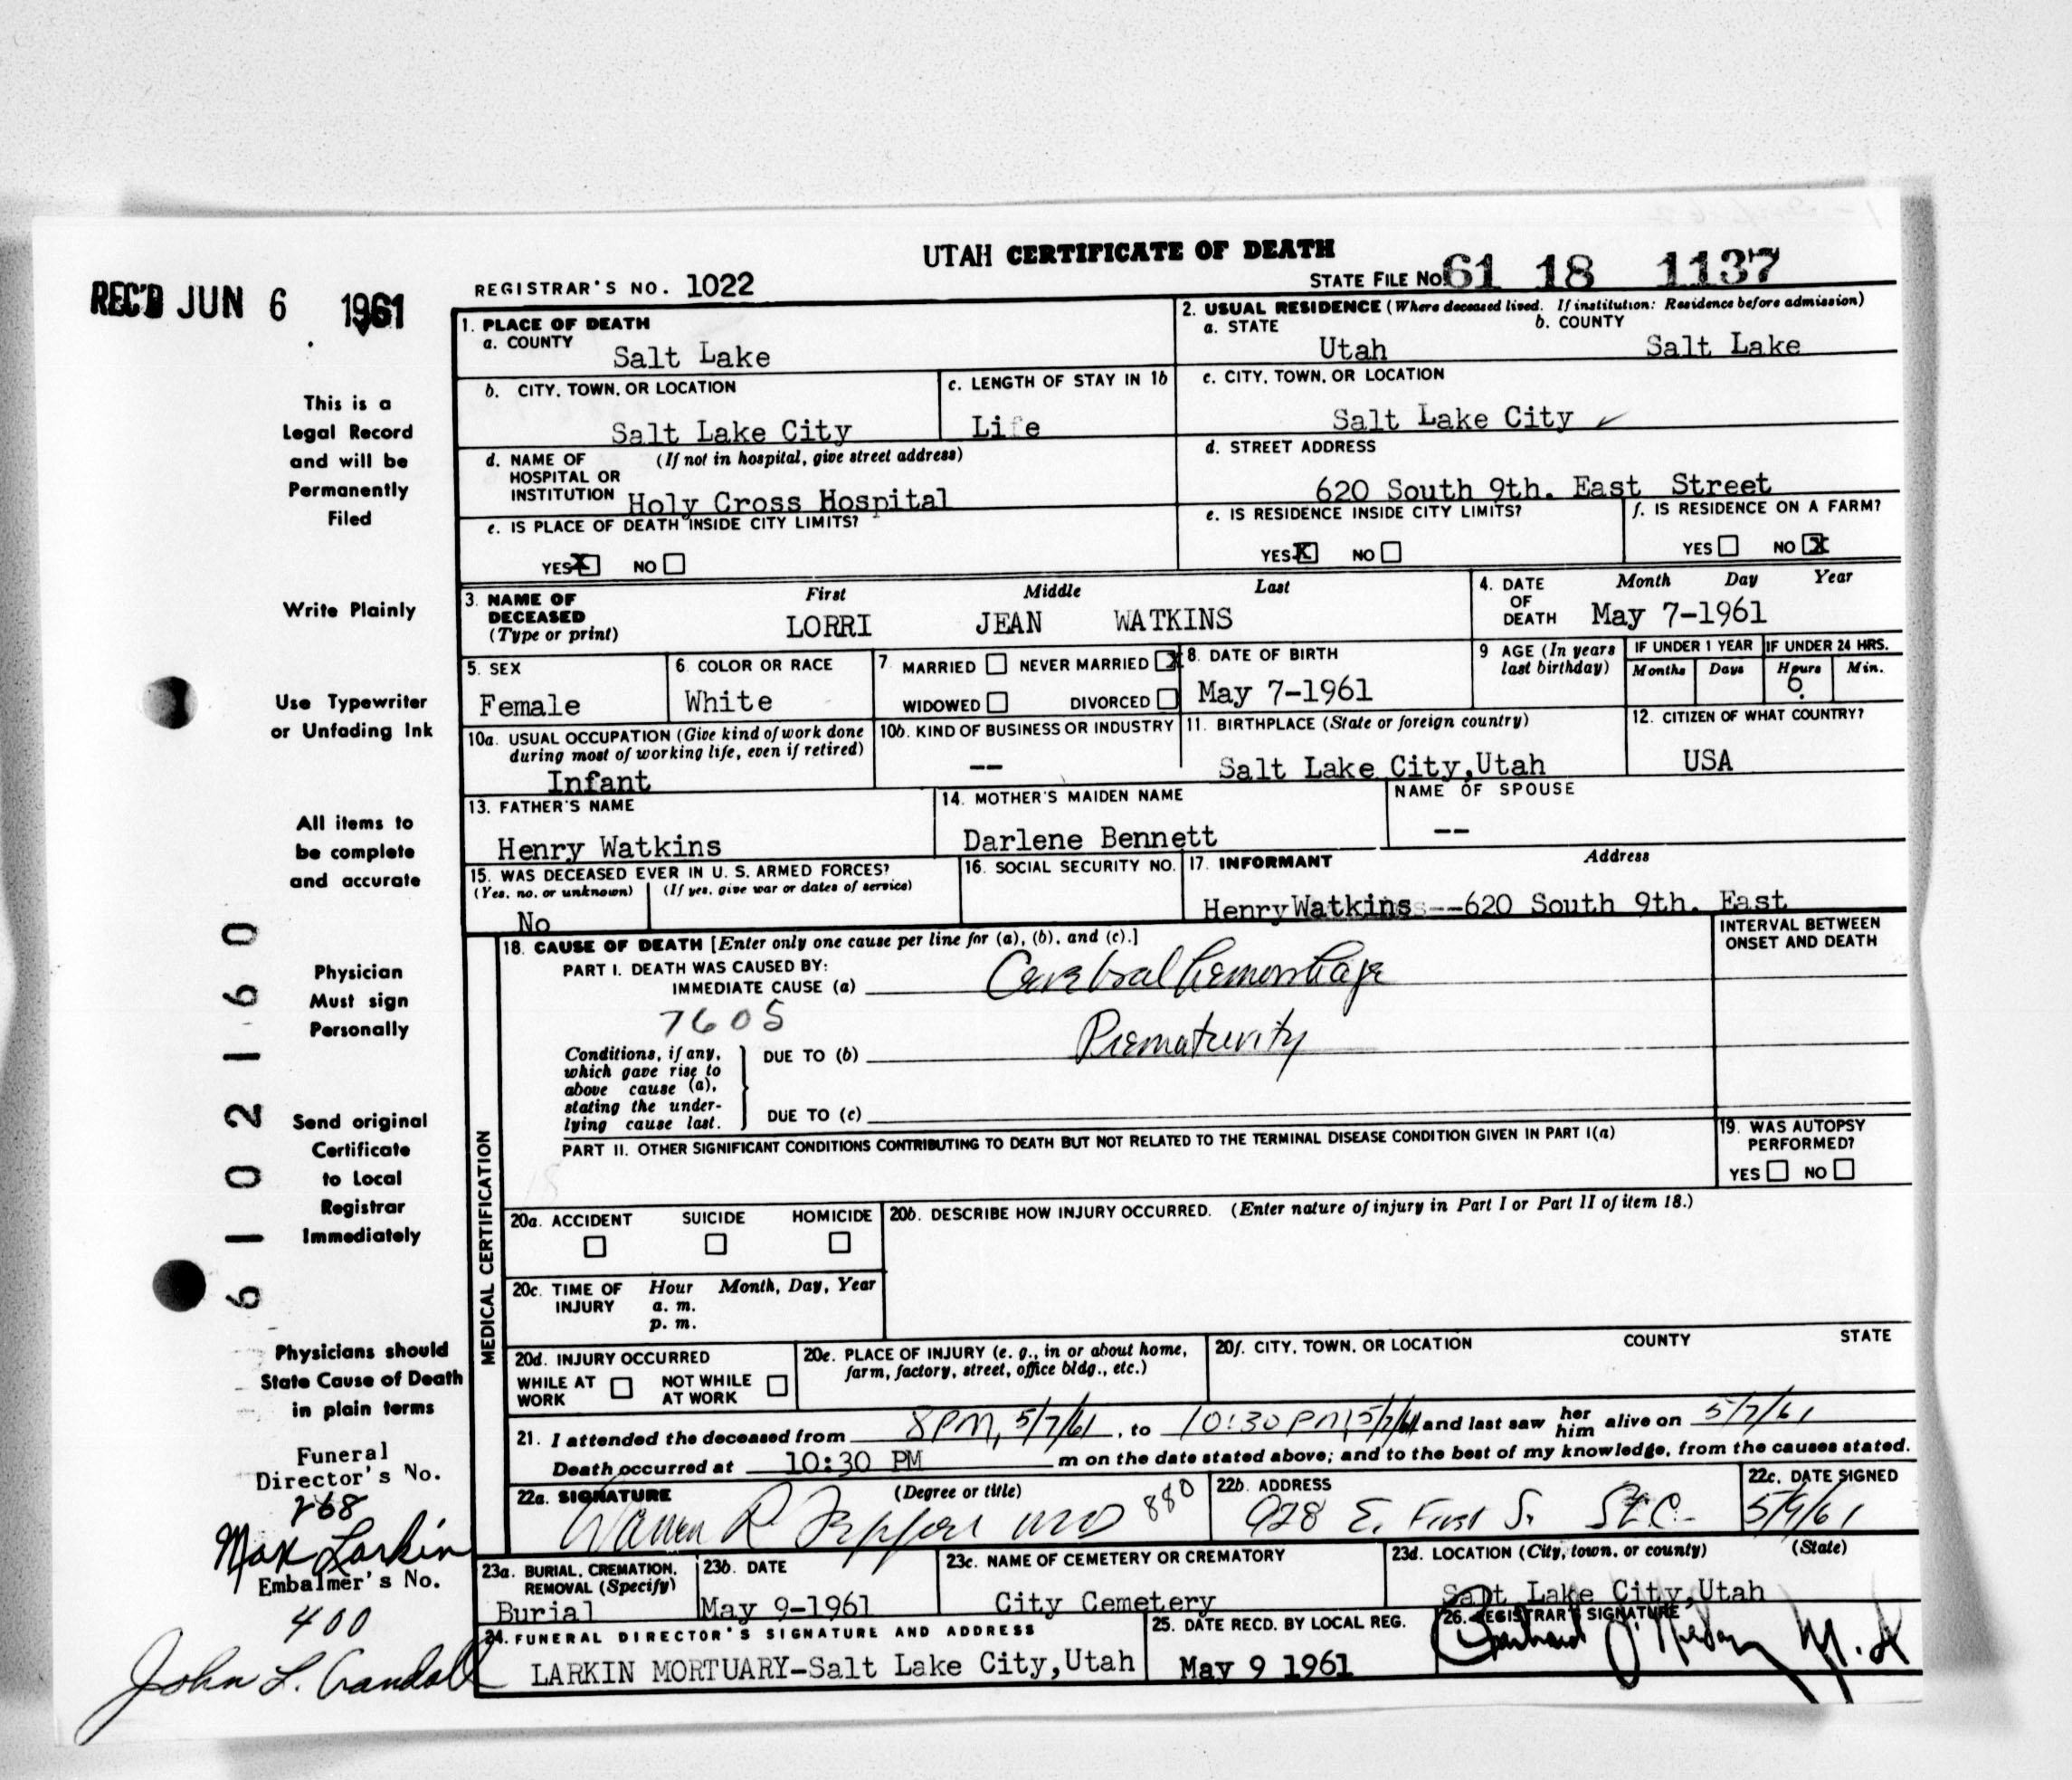 UTAH CERTIFICATE OF DEATH
REC'D JUN 6 1961
REGISTRAR'S NO. 1022
STATE FILE NO. 61 18 1137
1. PLACE OF DEATH
a. COUNTY
Salt Lake
2. USUAL RESIDENCE (Where deceased lived. If institution: Residence before admission)
a. STATE b. COUNTY
Utah Salt Lake
b. CITY, TOWN, OR LOCATION
Salt Lake City
c. LENGTH OF STAY IN 1b
Life
c. CITY, TOWN, OR LOCATION
Salt Lake City
d. NAME OF (If not in hospital, give street address)
HOSPITAL OR
INSTITUTION Holy Cross Hospital
d. STREET ADDRESS
620 South 9th. East Street
e. IS PLACE OF DEATH INSIDE CITY LIMITS?
YES X NO
e. IS RESIDENCE INSIDE CITY LIMITS?
YES X NO
f. IS RESIDENCE ON A FARM?
YES NO X
3. NAME OF DECEASED (Type or print)
First Middle Last
LORRI JEAN WATKINS
4. DATE OF DEATH
Month Day Year
May 7-1961
5. SEX
Female
6. COLOR OR RACE
White
7. MARRIED NEVER MARRIED X
WIDOWED DIVORCED
8. DATE OF BIRTH
May 7-1961
9 AGE (In years last birthday)
IF UNDER 1 YEAR
Months Days
IF UNDER 24 HRS.
Hours Min.
6
10a. USUAL OCCUPATION (Give kind of work done
during most of working life, even if retired)
Infant
10b. KIND OF BUSINESS OR INDUSTRY
--
11. BIRTHPLACE (State or foreign country)
Salt Lake City,Utah
12. CITIZEN OF WHAT COUNTRY?
USA
13. FATHER'S NAME
Henry Watkins
14. MOTHER'S MAIDEN NAME
Darlene Bennett
NAME OF SPOUSE
--
15. WAS DECEASED EVER IN U. S. ARMED FORCES?
(Yes, no, or unknown) (If yes, give war or dates of service)
No
16. SOCIAL SECURITY NO.
17. INFORMANT Address
Henry Watkins --620 South 9th. East
18. CAUSE OF DEATH [Enter only one cause per line for (a), (b), and (c).]
INTERVAL BETWEEN
ONSET AND DEATH
PART I. DEATH WAS CAUSED BY:
IMMEDIATE CAUSE (a) Cerebral hemorrhage
7605
Conditions, if any,
which gave rise to
above cause (a),
stating the under-
lying cause last.
DUE TO (b) Prematurity
DUE TO (c)
PART II. OTHER SIGNIFICANT CONDITIONS CONTRIBUTING TO DEATH BUT NOT RELATED TO THE TERMINAL DISEASE CONDITION GIVEN IN PART I(a)
19. WAS AUTOPSY
PERFORMED?
YES NO
MEDICAL CERTIFICATION
20a. ACCIDENT SUICIDE HOMICIDE
20b. DESCRIBE HOW INJURY OCCURRED. (Enter nature of injury in Part I or Part II of item 18.)
20c. TIME OF INJURY
Hour Month, Day, Year
a. m.
p. m.
20d. INJURY OCCURRED
WHILE AT WORK NOT WHILE AT WORK
20e. PLACE OF INJURY (e. g., in or about home,
farm, factory, street, office bldg., etc.)
20f. CITY, TOWN, OR LOCATION COUNTY STATE
21. I attended the deceased from 8PM, 5/7/61, to 10:30 PM, 5/7/61 and last saw her him alive on 5/7/61
Death occurred at 10:30 PM m on the date stated above; and to the best of my knowledge, from the causes stated.
22a. SIGNATURE (Degree or title)
Warren R MD 880
22b. ADDRESS
928 E. First S. SLC.
22c. DATE SIGNED
5/9/61
23a. BURIAL, CREMATION,
REMOVAL (Specify)
Burial
23b. DATE
May 9-1961
23c. NAME OF CEMETERY OR CREMATORY
City Cemetery
23d. LOCATION (City, town, or county) (State)
Salt Lake City,Utah
24. FUNERAL DIRECTOR'S SIGNATURE AND ADDRESS
LARKIN MORTUARY-Salt Lake City,Utah
25. DATE RECD. BY LOCAL REG.
May 9 1961
26. REGISTRAR'S SIGNATURE
This is a
Legal Record
and will be
Permanently
Filed
Write Plainly
Use Typewriter
or Unfading Ink
All items to
be complete
and accurate
Physician
Must sign
Personally
Send original
Certificate
to Local
Registrar
Immediately
Physicians should
State Cause of Death
in plain terms
6102160
Funeral
Director's No.
268
Max Larkin
Embalmer's No.
400
John L. Crandall